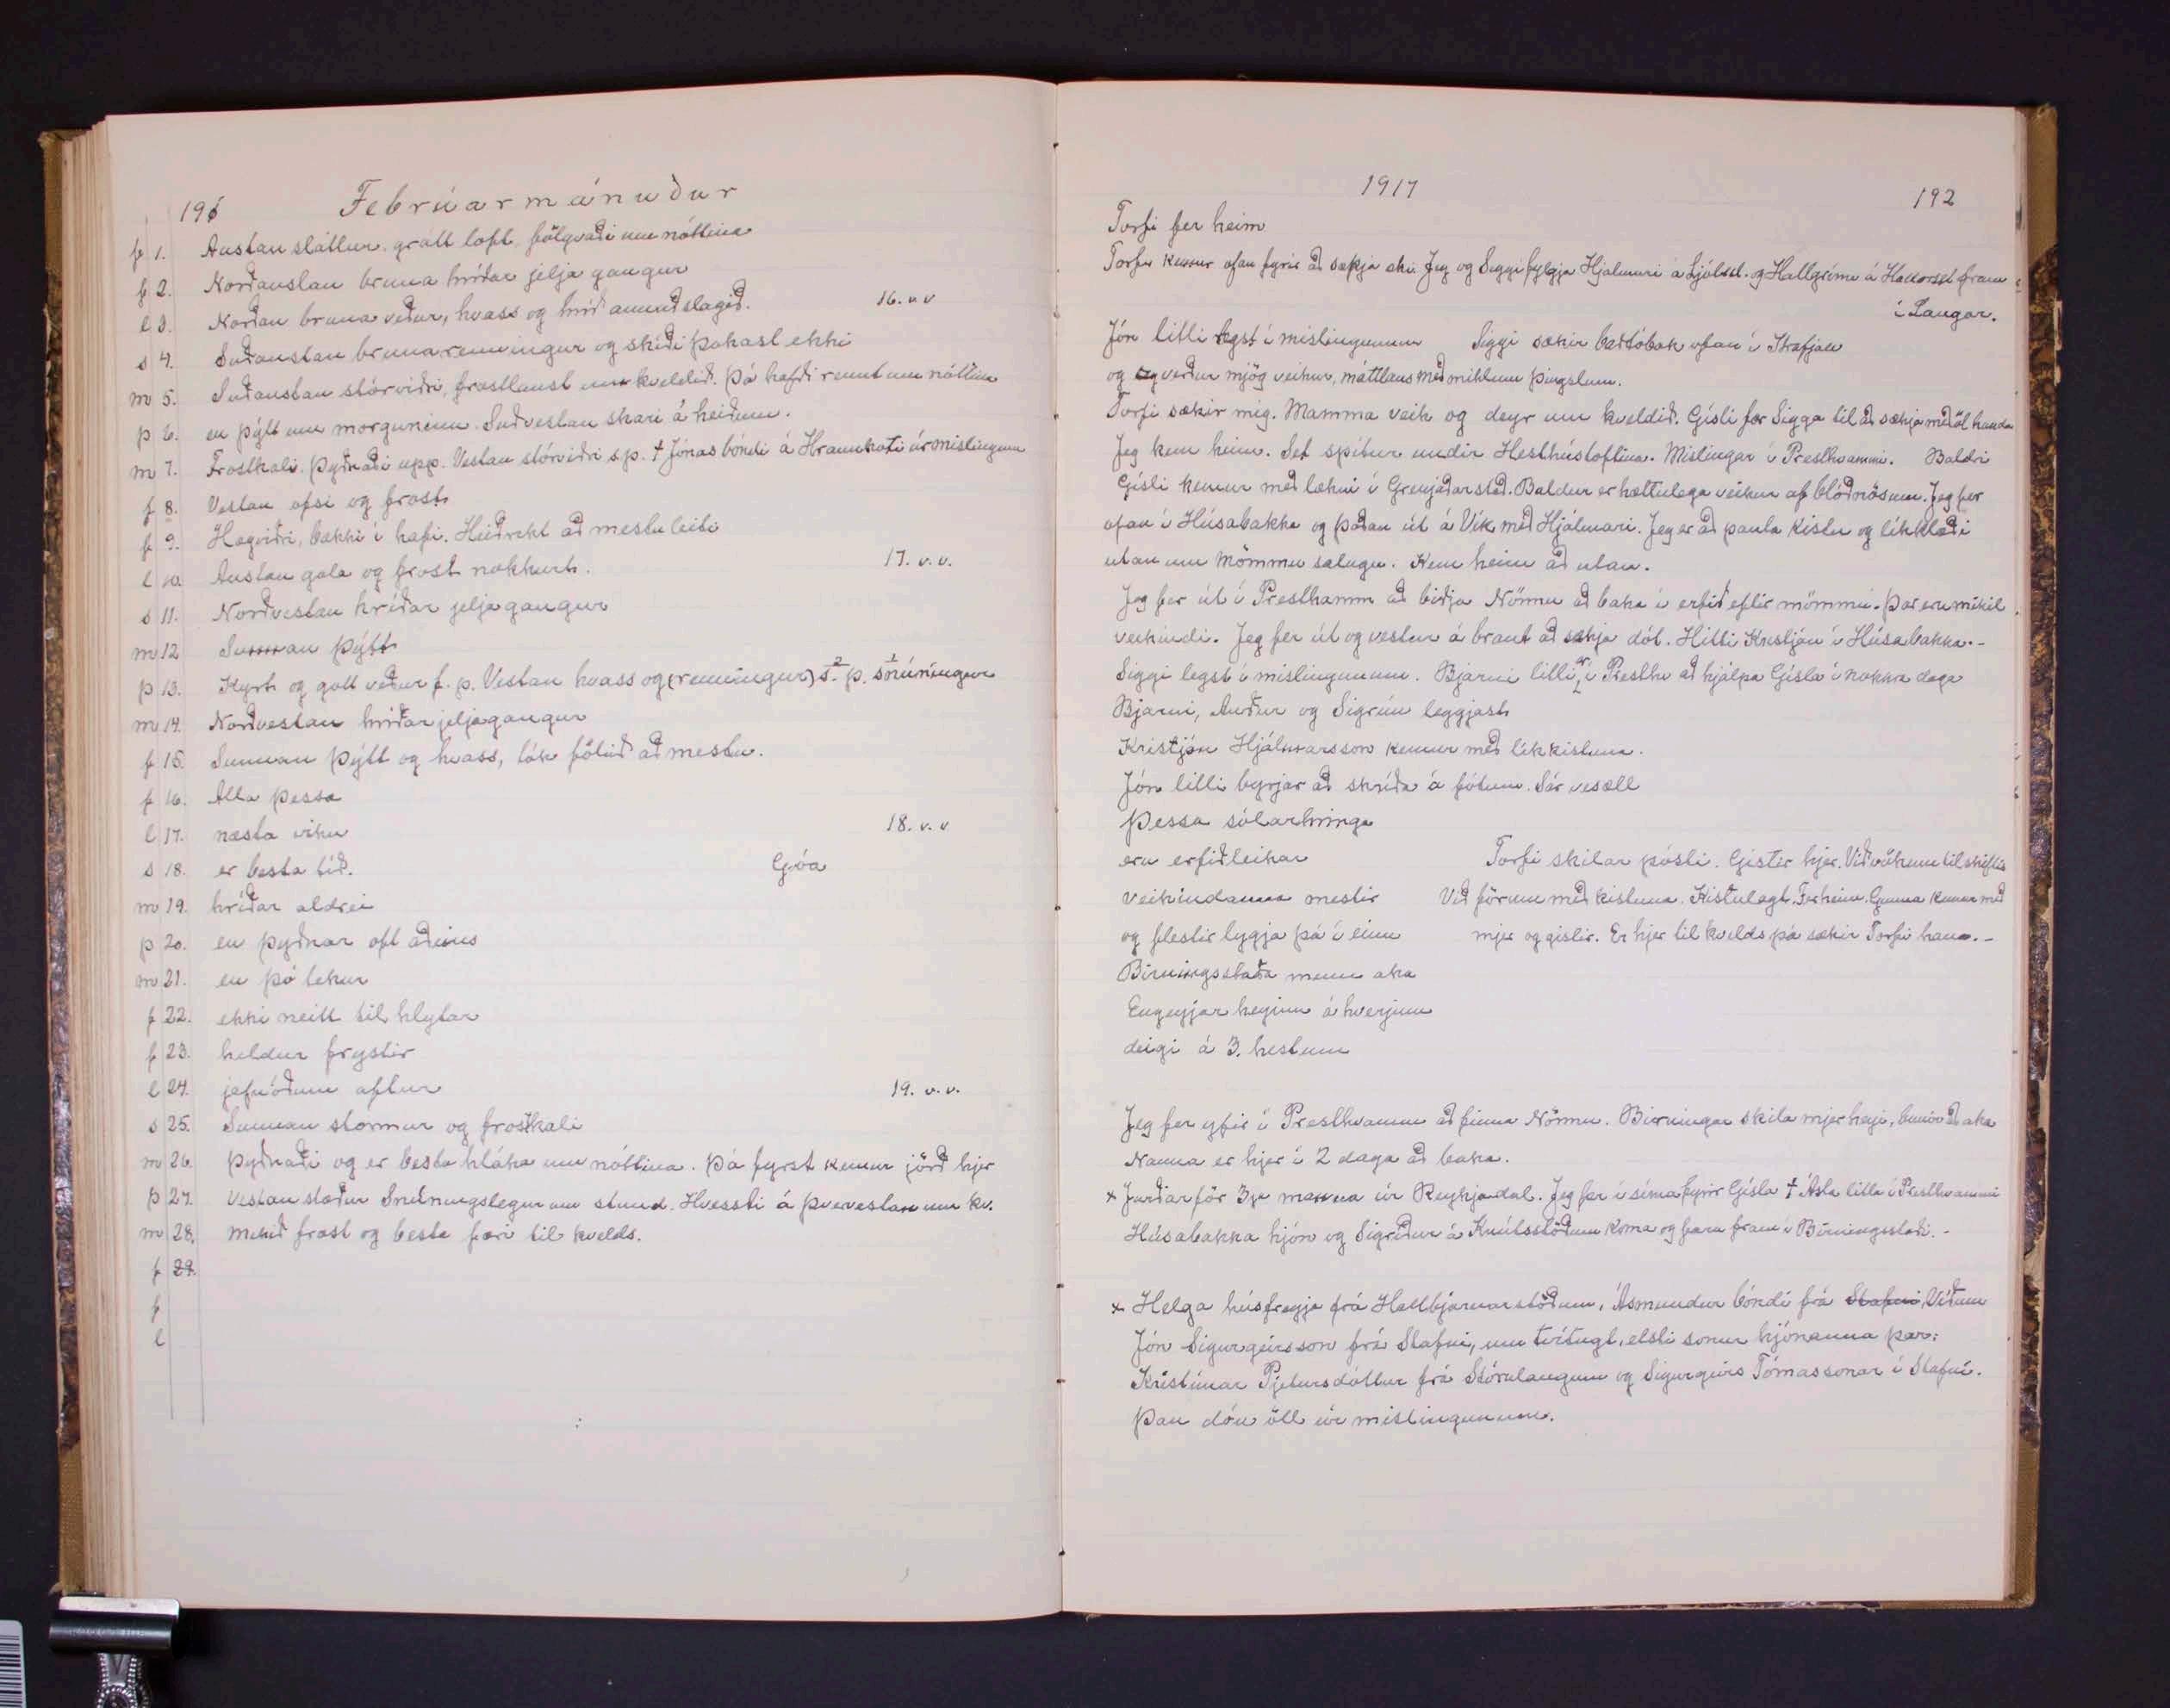 196 Febrúarmánuður
f 1. Austan sláttur. grátt loft fölgvaði um nóttina
f 2. Norðaustan bruna hríðar jeljagangur
l 3. Norðan bruna veður, hvass og hríð annað slagið. 16. v. v
s 4. Suðaustan brunarenningur og skíði þokast ekki
m 5. Suðaustan stórviðri, frostlaust um kveldið. Þá hafði rennt um nóttina
þ 6. en þýtt um morguninn. Suðvestan skari á heiðum.
m 7. Frostkali. Þyðnaði upp. Vestan stórviðri s.p. † Jónas bóndi á Hraunkoti úr mislingum
f 8. Vestan ofsi og frost
f 9. Hægviðri, bakki í hafi. Heiðrikt að mestu leiti
l 10 Austan gola og frost nokkurt. 17. v. v.
s 11. Norðvestan hríðar jeljagangur
m 12 Sunnan þýtt
þ 13. Kyrt og gott veður f. p. Vestan hvass og (renningur) 2 s. p. 1 snúningur
m 14. Norðvestan hríðarjeljagangur
f 15. Sunnan þýtt og hvass, tók fölið að mestu.
f 16. Alla þessa
l 17. næsta viku 18. v. v
s 18. er besta tíð. Góa
m 19. hríðar aldrei
þ 20. en þyðnar oft aðeins
m 21. en þó tekur
f 22. ekki neitt til hlytar
f 23. heldur frystir
l 24. jafnóðum aftur 19. v. v.
s 25. Sunnan stormur og frostkali
m 26. Þyðnaði og er besta hláka um nóttina. Þá fyrst kemur jörð hjer
þ 27. Vestan stæður Snúningslegur um stund. Hvessti á þvervestan um kv.
m 28. mikið frost og besta færi til kvelds.
f 29.
f
l
1917 192
Torfi fer heim
Torfi kemur ofan fyrir að sækja eki. Jeg og Siggi fylgja Hjálmari á Ljótsst. og Hallgrími á Hallarsel fram
í Laugar.
Jón litli legst í mislingunum Siggi sækir baðtóbak ofan í Skafjall
og eg verður mjög veikur, máttlaus með miklum þyngslum.
Torfi sækir mig. Mamma veik og deyr um kveldið. Gísli fær Sigga til að sækja meðöl handa
Jeg kem heim. Set spítur undir Hesthústoftina. Mislingar í Presthvammi. Baldri
Gísli kemur með lækni í Grenjaðarstað. Baldur er hættulega veikur af blóðnösum. Jeg fer
ofan í Húsabakka og þaðan út á Vík með Hjálmari. Jeg er að panta kistu og líkklæði
utan um mömmu sálugu. Kem heim að utan.
Jeg fer út í Presthamm að biðja Nönnu að baka í erfið eftir mömmu. Þar eru mikil
veikindi. Jeg fer út og vestur á braut að sækja dót. Hitti Kristján í Húsabakka.-
Siggi legst í mislingunum. Bjarni litli er í Presthv að hjálpa Gísla í nokkra daga
Bjarni, Auður og Sigrún leggjast
Kristján Hjálmarsson kemur með líkkistuna.
Jón litli byrjar að skríða á fótum. Sár vesæll
Þessa sólarhringa
eru erfiðleikar Torfi skilar pósti. Gistir hjer. Við vökum til skiftis
veikindanna mestir Við förum með kistuna. Kistulagt. Fer heim. Gunna kemur með
og flestir lyggja þá í einu mjer og gistir. Er hjer til kvelds þá sækir Torfi hana.-
Birningsstaða menn aka
Engeyjar heyinu á hverjum
deigi á 3. hestum
Jeg fer yfir í Presthvamm að finna Nönnu. Birningar skila mjer heyi, búnir að aka
Nanna er hjer í 2 daga að baka.
x Jarðarför 3ja manna úr Reykjadal. Jeg fer í síma fyrir Gísla † Ásta litla í Presthvammi
Húsabakka hjón og Sigríður á Knútsstöðum koma og fara fram í Birningsstaði.-
x Helga húsfreyja frá Hallbjarnarstöðum, Ásmundur bóndi frá Stafni, Víðum
Jón Sigurgeirsson frá Stafni, um tvítugt, elsti sonur hjónanna þar:
Kristínar Pjetursdóttur frá Stórulaugum og Sigurgeirs Tómassonar í Stafni.
Þau dóu öll úr mislingunum.